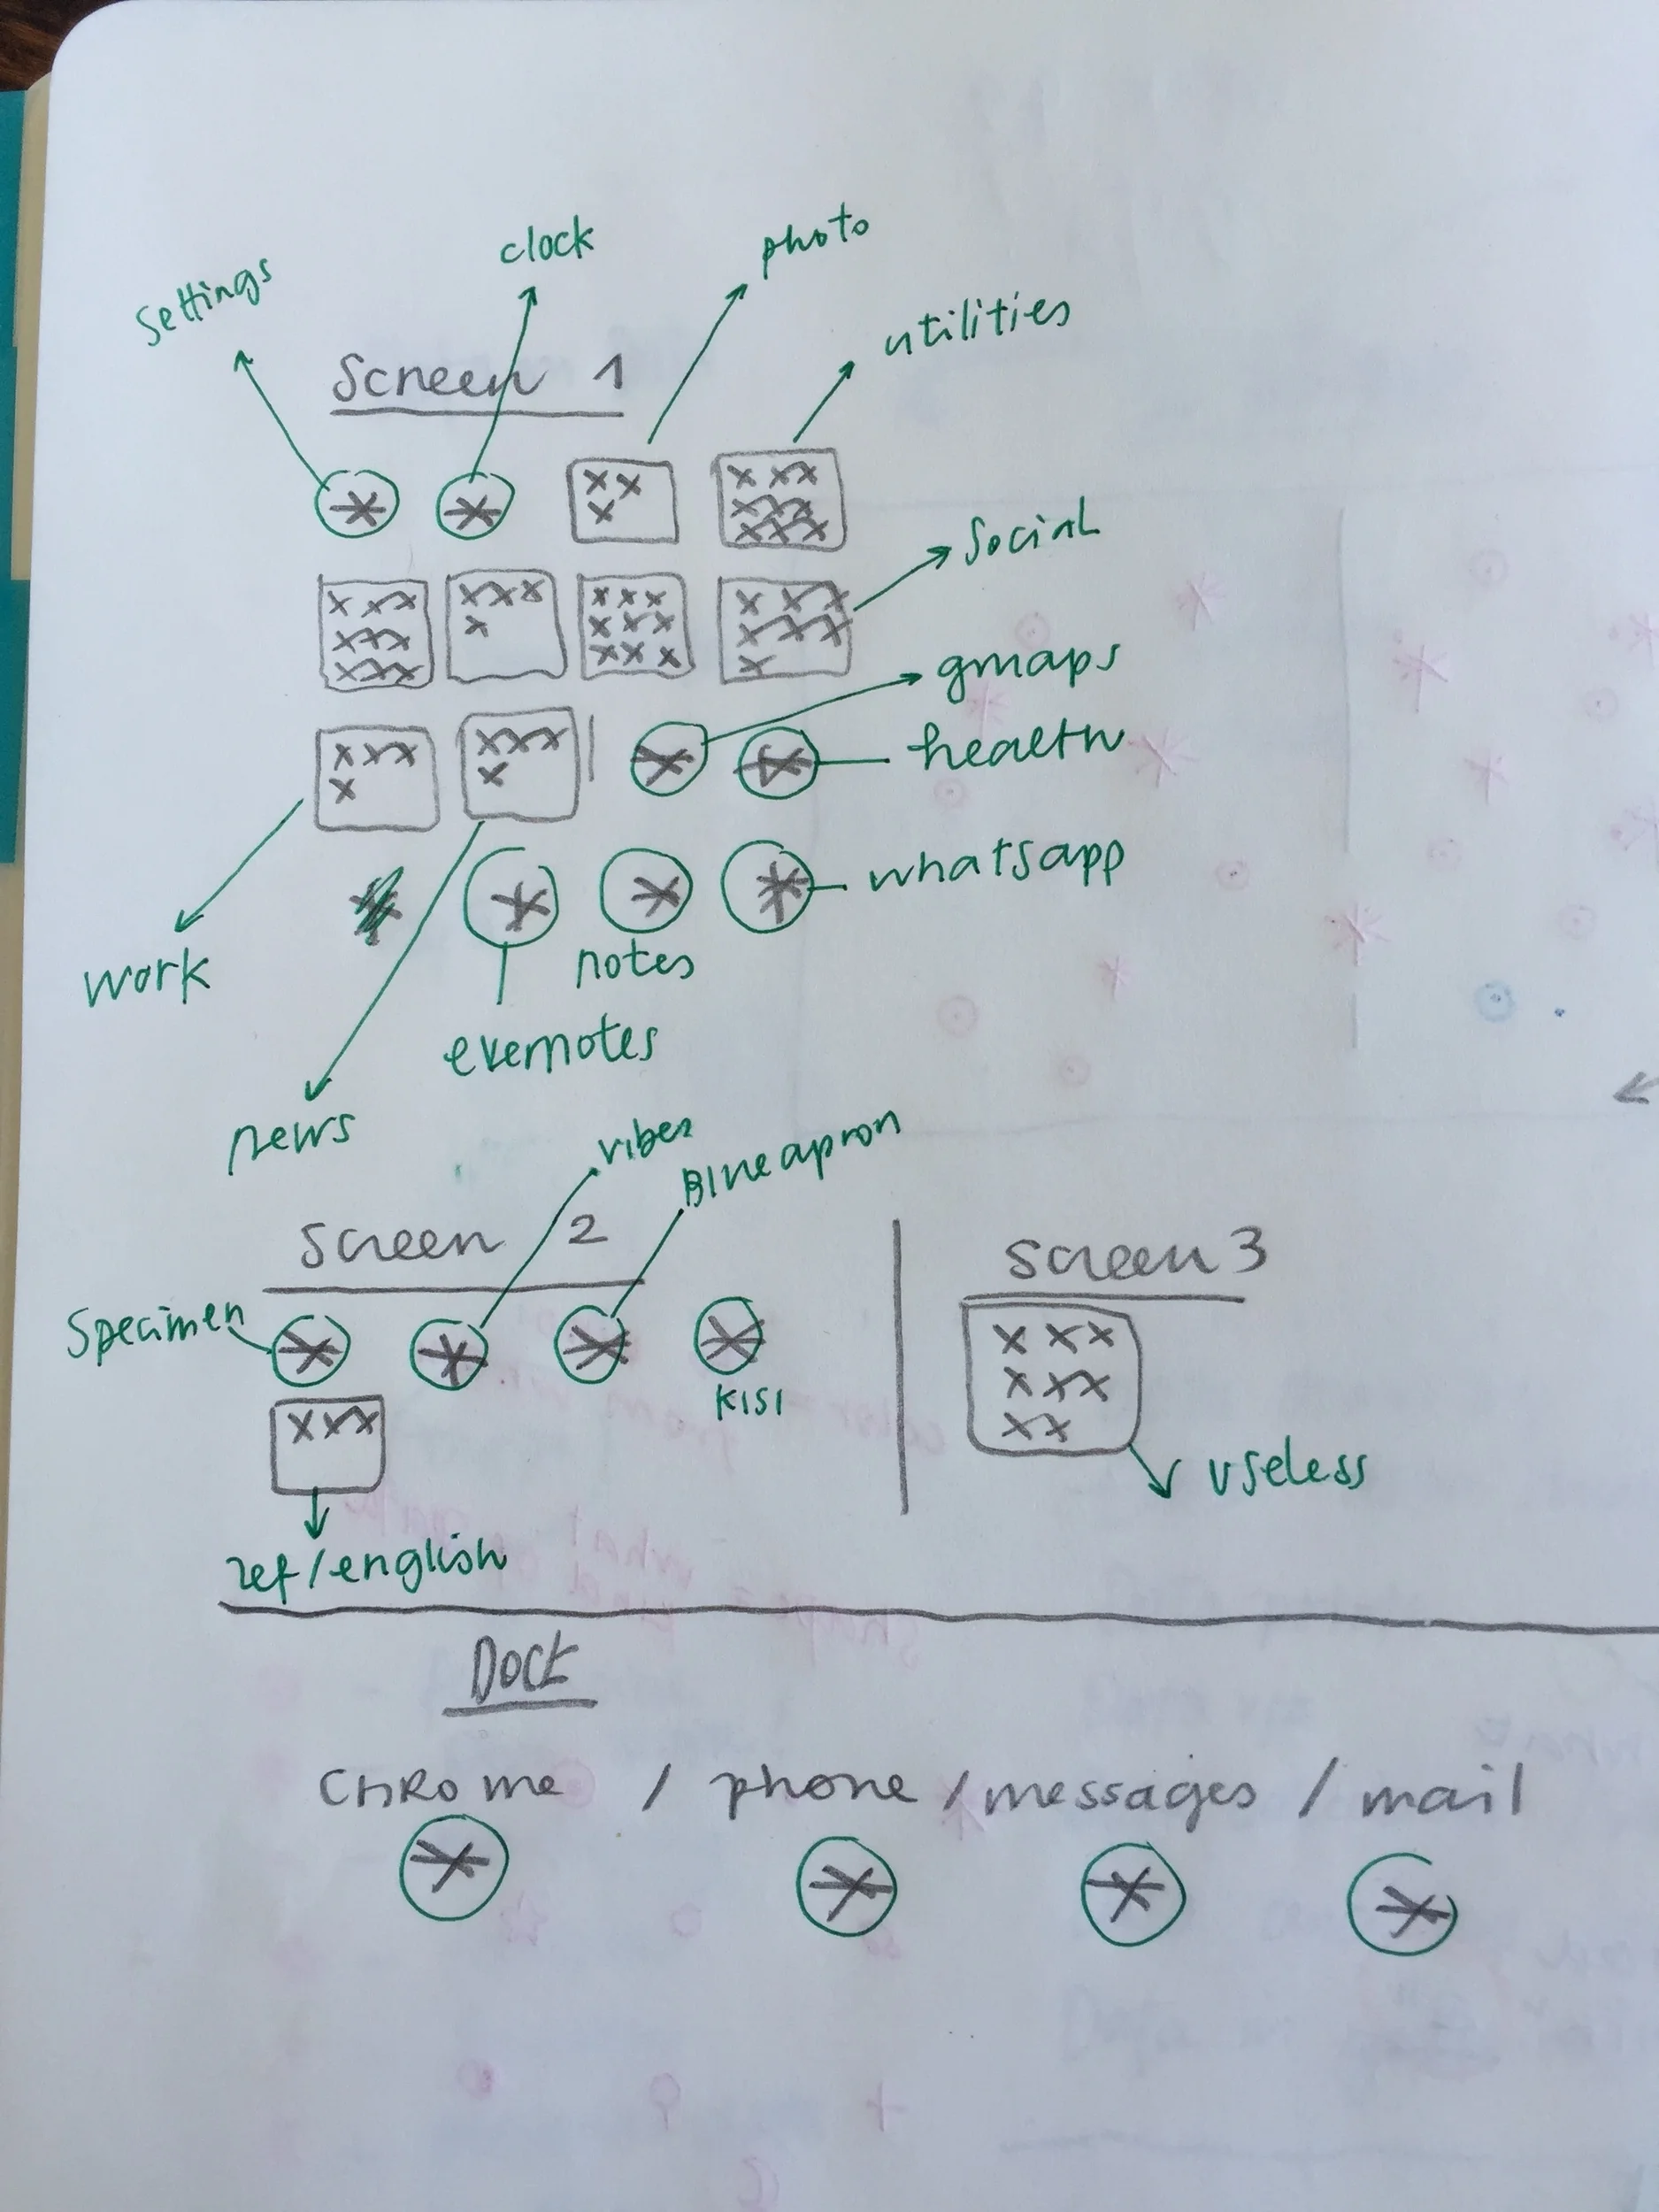 clock
photo
settings
utilities
Screen 1
social
gmaps
health
whatsapp
work
notes
evernotes
news
vibes
Blue apron
Screen 2
Screen 3
Specimen
KISI
useless
ref/english
Dock
CHRome / phone / messages / mail